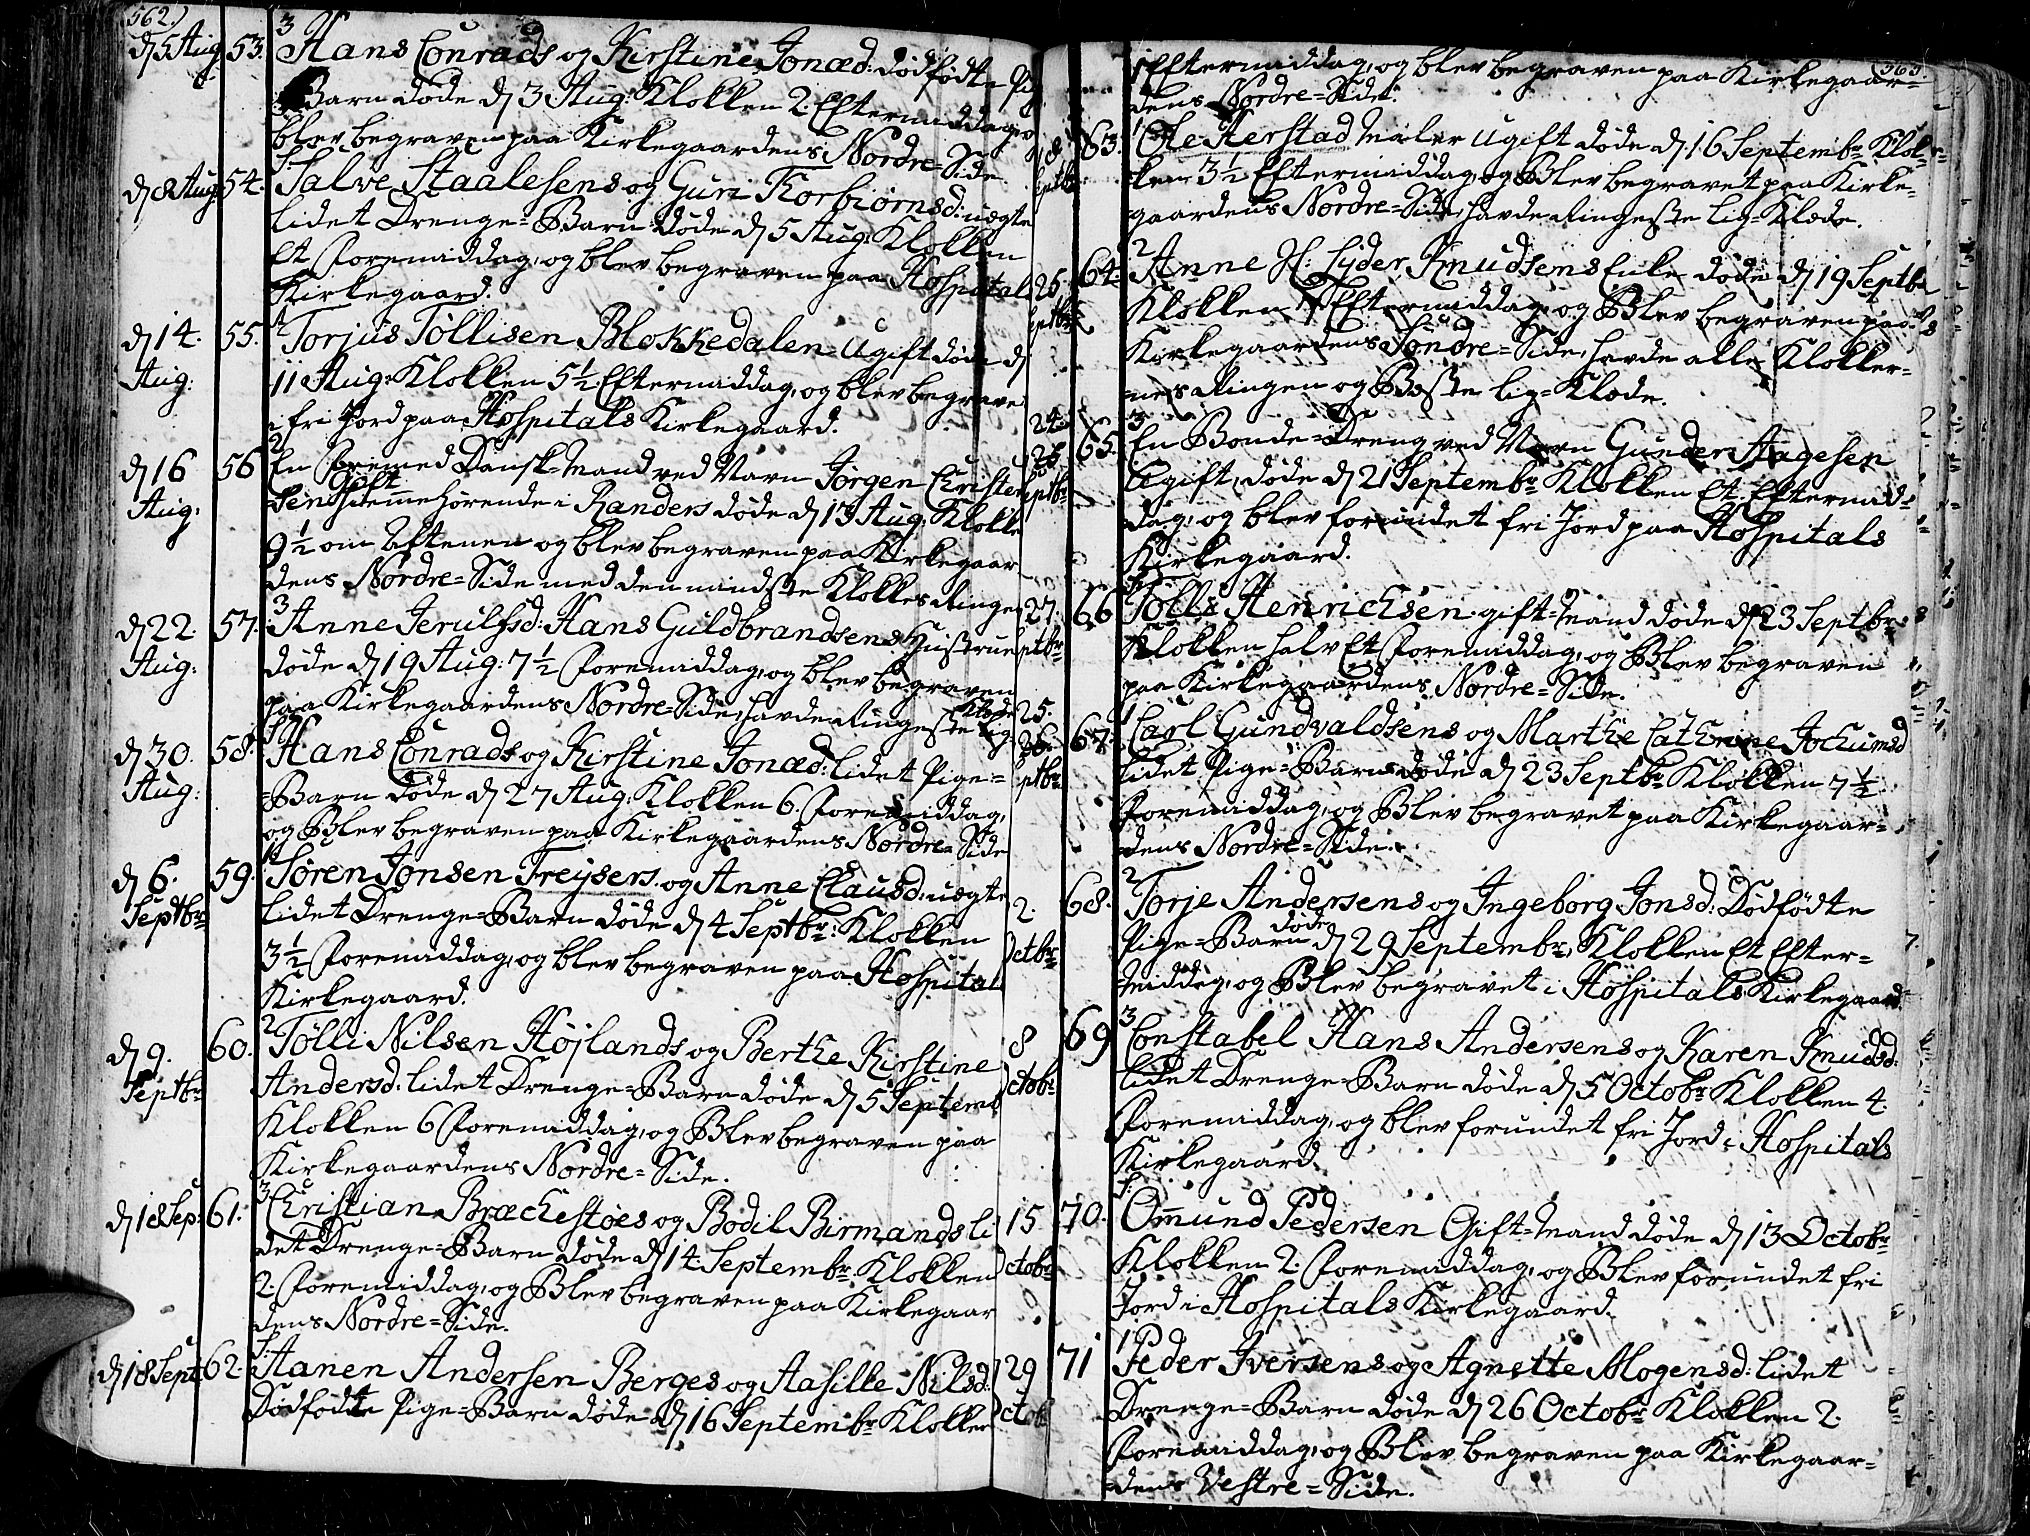 562.)
3
d 5 Aug 53. Hans Conrads og Kirstine Jonæd: dødfødte Pig
Barn døde d 3 Aug: Klokken 2. Eftermiddag, og
blev begraven paa Kirkegaardens Nordre=Side.
d 8 Aug: 54. Salve Staalesens og Guri Torbiørnsd: uægte
lidet Drenge=Barn døde d 5 Aug: Klokken
Et Foremiddag, og blev begraven paa Hospital
Kirkegaard.
d 14. Aug: 55. Torjus Tøllisen Blokkedalen Ugift døde d
11 Aug: Klokken 5½ Eftermiddag, og blev begrave
i fri Jord paa Hospitals Kirkegaard.
2
d 16 Aug: 56 En fremmed Dansk=Mand ved Navn Jørgen Christen
Gift
sen hiemmehørende i Randers døde d 13 Aug: Klokke
9½ om Aftenen og blev begraven paa Kirkegaar
dens Nordre=Side med den mindste Klokkes Ringe
3
d 22. Aug: 57. Anne Jerulfsd: Hans Guldbrandsens Hustrue
døde d 19 Aug: 7½ Foremiddag, og blev begraven
paa Kirkegaardens Nordre=Side, havde Ringeste Lig=
Klæde
d 30. Aug: 58. Hans Conrads og Kirstine Jonæd: lidet Pige=
=Barn døde d 27 Aug: Klokken 6. Foremiddag,
og Blev begraven paa Kirkegaardens Nordre=Side
1
d 6. Septbr 59. Søren Jonsen Treysers og Anne Clausd: uægte
lidet Drenge=Barn døde d 4 Septbr: Klokken
3½ Foremiddag, og blev begraven paa Hospital
Kirkegaard.
2
d 9. Septbr 60. Tølli Nilsen Højlands og Berthe Kirstine
Andersd: lidet Drenge=Barn døde d 5 Septemb
Klokken 6 Foremiddag, og Blev begraven paa
Kirkegaardens Nordre=Side.
3
d 18 Sep: 61. Christian Bræchestøes og Bodil Birmands li
det Drenge=Barn døde d 14 Septembr Klokken
2. Foremiddag, og Blev begraven paa Kirkegaar
dens Nordre=Side.
d 18 Sept 62. Aanen Andersen Berges og Aasille Nilsd:
Dødfødte Pige=Barn døde d 16 Septembr Klokken
563.
1 Eftermiddag, og blev begraven paa Kirkegaar=
dens Nordre=Side.
1
18 Septbr 63. Ole Herstad Maler Ugift døde d. 16 Septembr Klok=
ken 3½ Eftermiddag, og Blev begravet paa Kirke=
gaardens Nordre=Side, havde Ringeste Lig=Klæde.
2
25. Septbr 64. Anne Sl: Lyder Knudsens Enke døde d 19 Septbr
Klokken Eftermiddag, og Blev begraven paa
Kirkegaardens Søndre=Side, havde alle Klokker=
nes Ringen og Beste Lig=Klæde.
3
24. 65. En Bonde=Dreng ved Navn Gunder Aagesen
Ugift, døde d 21 Septembr Klokken Et Eftermid=
dag, og blev forundet fri Jord paa Hospitals
Kirkegaard.
27. Septbr 66 Tølli Henrichsen gift=Mand døde d 23 Septbr
Klokken halv Et Foremiddag, og Blev begraven
paa Kirkegaardens Nordre=Side.
1
25. Septbr 67. Carl Gundvaldsens og Marthe Cathrine Jochumsd
lidet Pige=Barn døde d 23 Septbr Klokken 7½
Foremiddag, og Blev begravet paa Kirkegaar=
dens Nordre=Side.
2
2. Octbr 68. Torje Andersens og Ingeborg Jonsd: Dødfødte
døde
Pige=Barn d 29 Septembr Klokken Et Efter=
middag, og Blev begravet i Hospitals Kirkegaard
3
8 Octobr 69 Constabel Hans Andersens og Karen Knudsd:
lidet Drenge=Barn døde d 5 Octobr Klokken 4.
Foremiddag, og blev forundet fri Jord i Hospitals
Kirkegaard.
15 Octobr 70. Omund Pedersen Gift=Mand døde d 13 Octobr
Klokken 2. Foremiddag, og Blev forundet fri
Jord i Hospitals Kirkegaard.
1
29 Octob 71 Peder Iversens og Agnette Mogensd: lidet
Drenge=Barn døde d 26 Octobr Klokken 2.
Foremiddag, og Blev begraven paa Kirkegaar=
dens Vestre=Side.